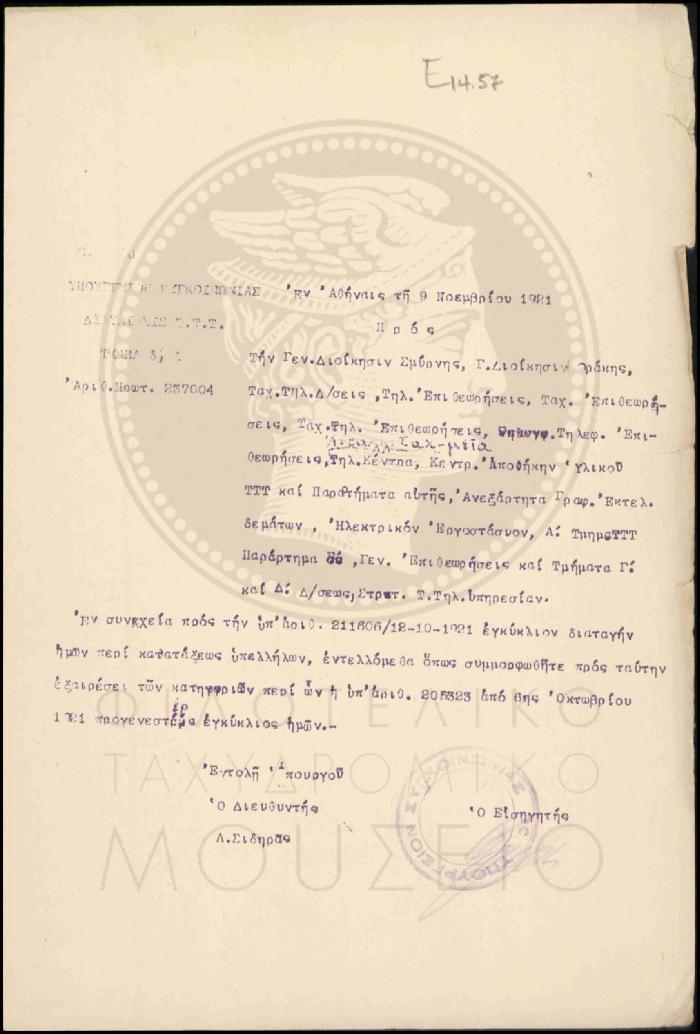 Ε14.57
ΥΠΟΥΡΓΕΙΟΝ ΣΥΓΚΟΙΝΩΝΙΑΣ
Ἐν Ἀθήναις τῇ 9 Νοεμβρίου 1921
ΔΙΕΥΘΥΝΣΙΣ Τ.Τ.Τ.
Πρός
ΤΜΗΜΑ δ', 1
Τήν Γεν.Διοίκησιν Σμύρνης, Γ.Διοίκησιν Θράκης,
Ἀριθ.Πρωτ. 237004
Ταχ.Τηλ.Δ/σεις ,Τηλ.Ἐπιθεωρήσεις, Ταχ. Ἐπιθεωρή-
σεις, Ταχ.Τηλ. Ἐπιθεωρήσεις, Τηλεφ. Ἐπι-
θεωρήσεις,Τηλ.Κέντρα, Κεντρ.Ἀποθήκην Ὑλικοῦ
ΤΤΤ καί Παραρτήματα αὐτῆς,Ἀνεξάρτητα Γραφ.Ἐκτελ.
δεμάτων , Ἠλεκτρικόν Ἐργοστάσυον, Α: ΤμημαΤΤΤ
Παράρτημα ,Γεν. Ἐπιθεωρήσεις καί Τμήματα Γ:
καί Δ: Δ/σεως,Στρατ. Τ.Τηλ.ὑπηρεσίαν.
Ἐν συνεχείᾳ πρός τήν ὑπ'ἀριθ. 211606/12-10-1921 ἐγκύκλιον διαταγήν
ἡμῶν περί κατατάξεως ὑπαλλήλων, ἐντελλόμεθα ὅπως συμμορφωθῆτε πρός ταύτην
ἐξαιρέσει τῶν κατηγοριῶν περί ὧν ἡ ὑπ'ἀριθ. 205323 ἀπό 6ης Ὀκτωβρίου
1921 προγενεστέρα ἐγκύκλιος ἡμῶν.-
Ἐντολῇ Ὑπουργοῦ
Ὁ Διευθυντής
Ὁ Εἰσηγητής
Λ.Σιδηρᾶς
ΥΠΟΥΡΓΕΙΟΝ ΣΥΓΚΟΙΝΩΝΙΑΣ
ΦΙΛΟΤΕΛΙΚΟ
ΤΑΧΥΔΡΟΜΙΚΟ
ΜΟΥΣΕΙΟ